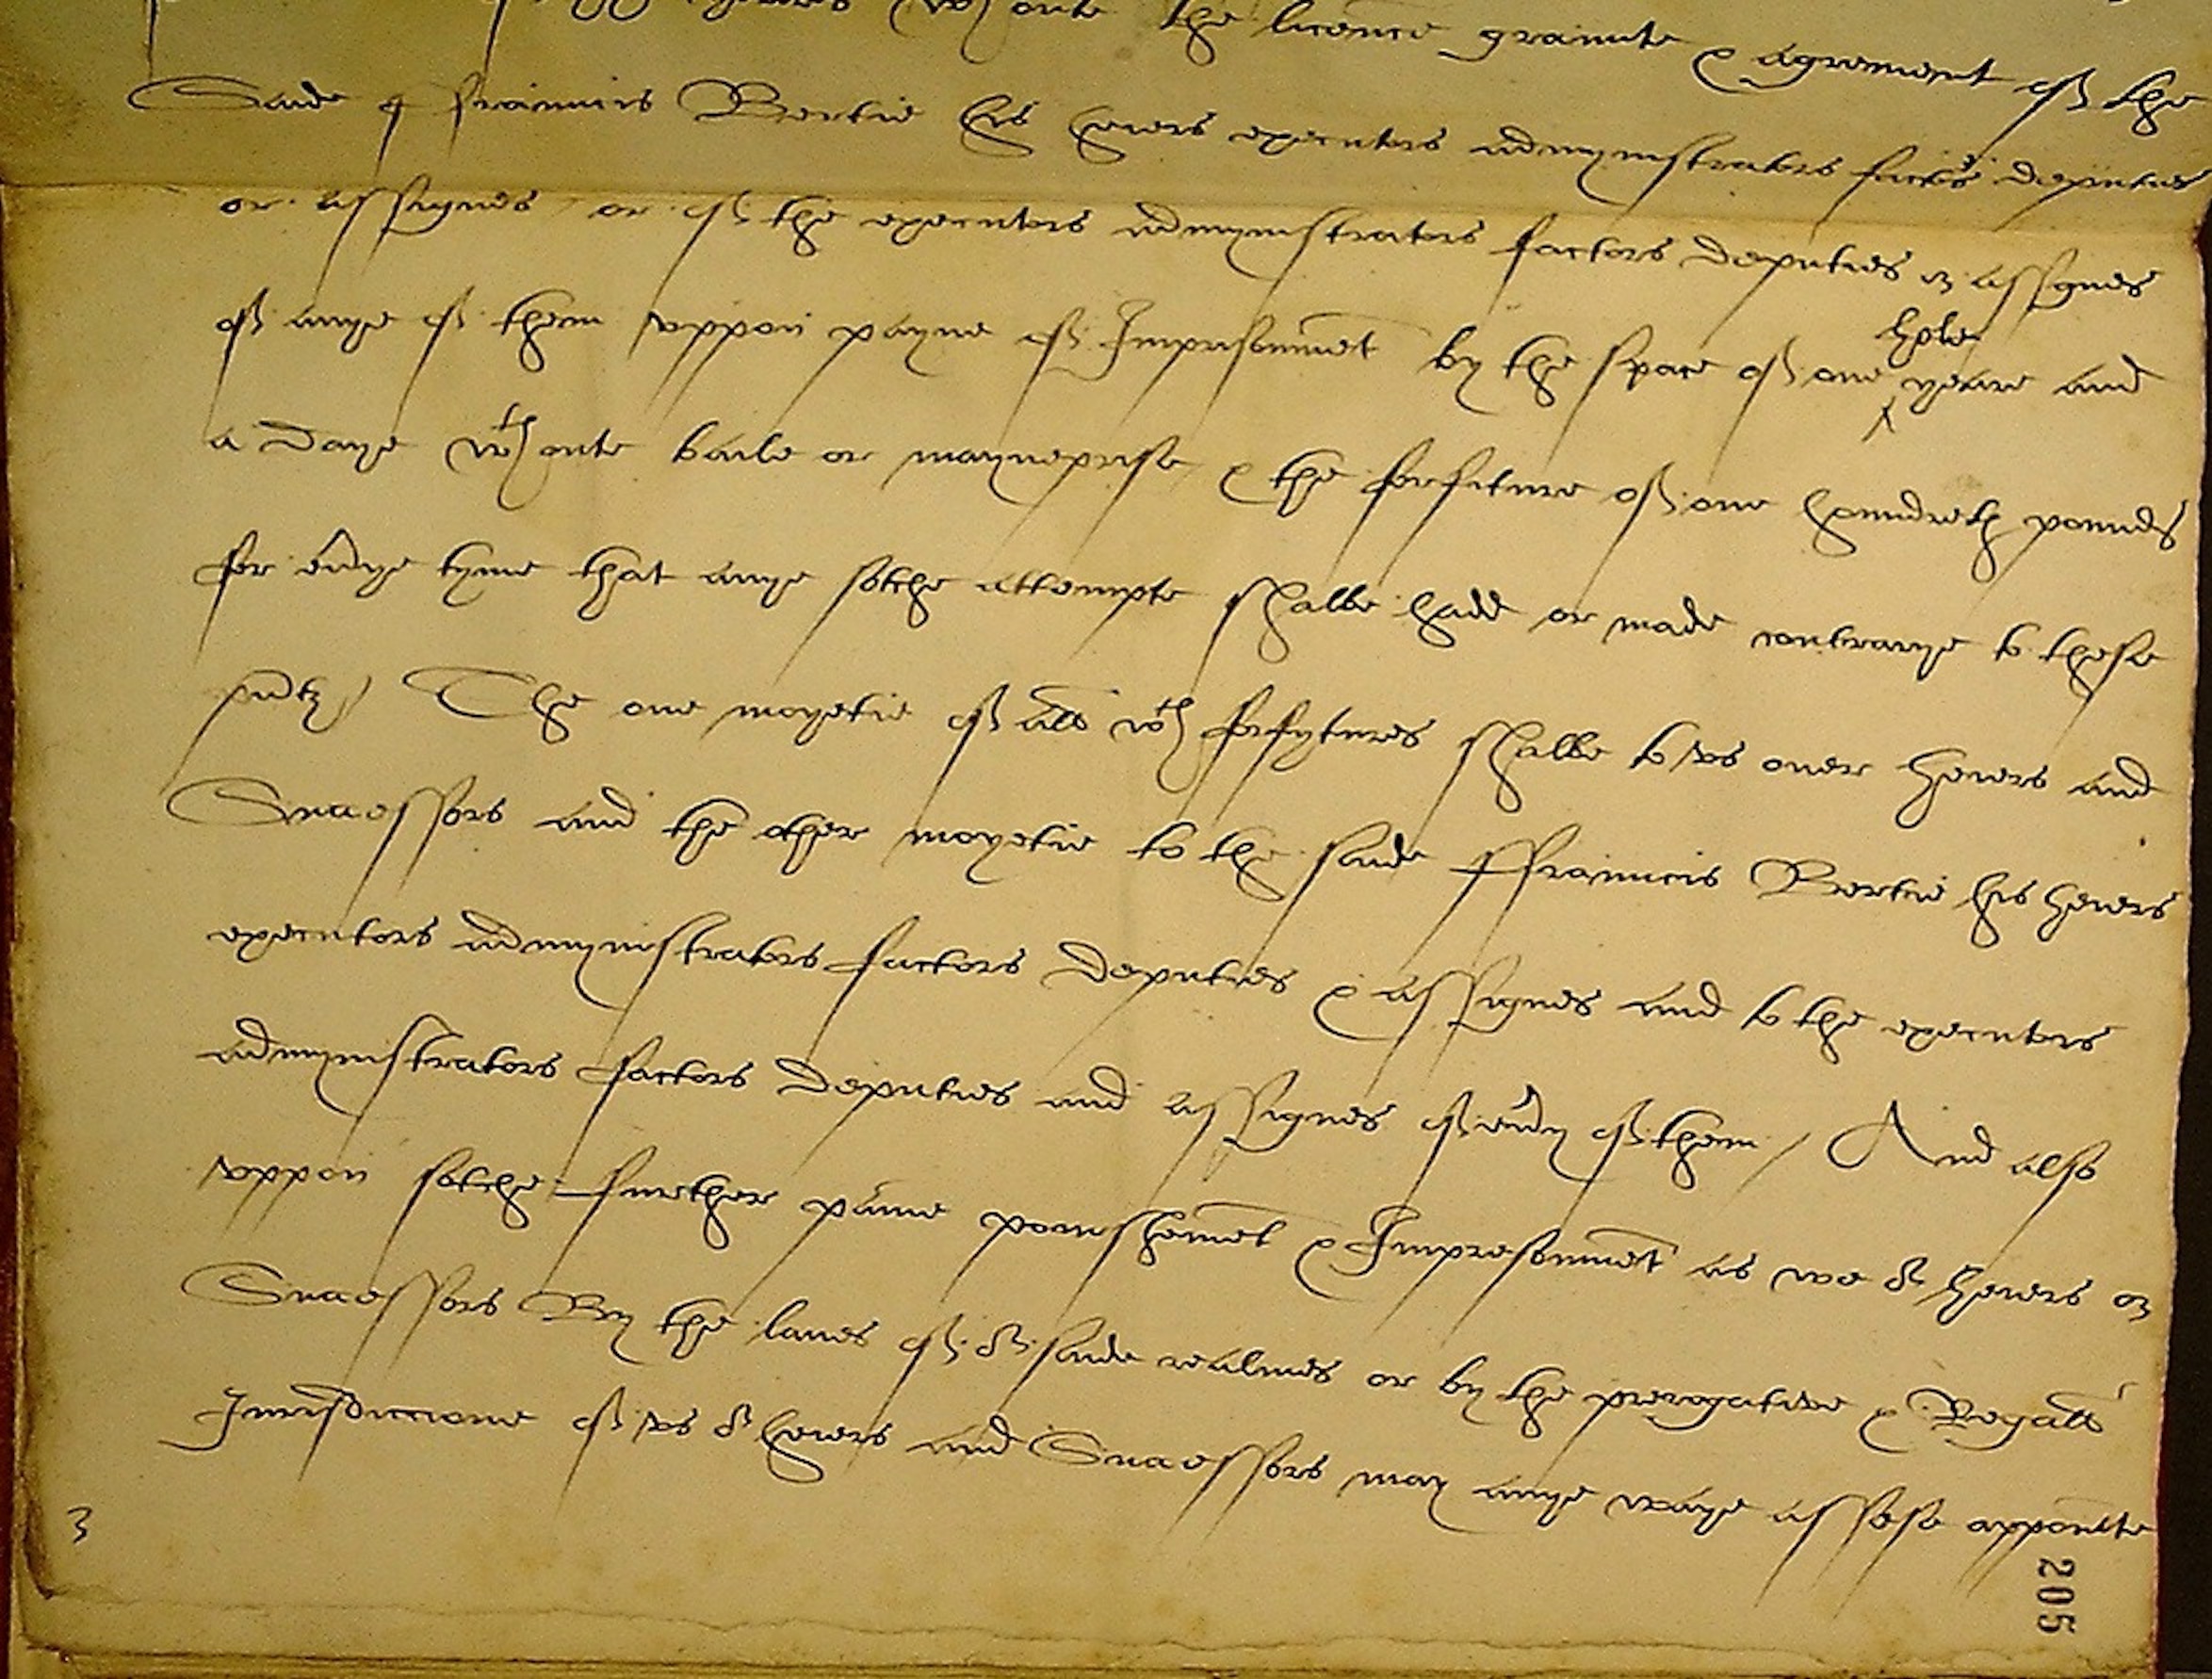 yeares wth oute the licence graunte & agrement of the
Saide ffrauncis Bertie his heiers executors admynistrators factors deputies
or assignes or of the executors admynistrators factors deputies or assignes
of anye of them vppon payne of Imprisonmet by the space of one hole yeare and
a daye wth oute baile or mayneprise & the forfiture of one houndreth pounds
for eūye tyme that anye sotche attempte shalbe hadd or made contrarye to these
pñtz / The one moyetie of all wch forfytures shalbe to vs ouer heiers and
Successors and the other moyetie to the saide ffrauncis Bertie his heiers
executors admynistrators factors deputies & assignes and to the executors
admynistrators factors deputies and assignes of eūy of them / And also
vppon sotche further paine ponishemet & Impresonmet as we or heiers or
Successors By the lawes of or saide realmes or by the prerogative & Regall
Jurisdiccione of vs or heiers and Successors may anye waye assese appointe
3
205